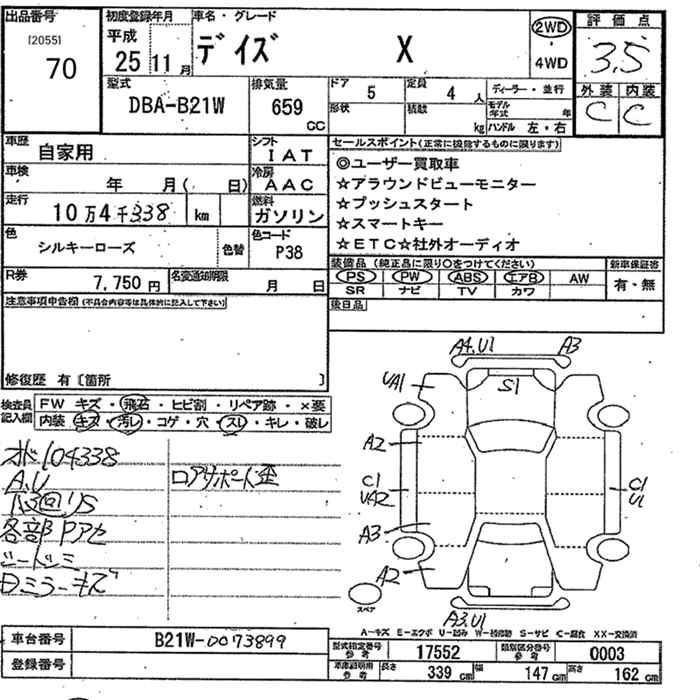 出品番号 初度登録年月 車名・グレード 2WD 評価点
[2055] 平成 デイズ X 4WD 3.5
70 25 11月
型式 排気量 ドア 5 定員 4人 ディーラー・並行 外装 内装
DBA-B21W 659 CC 形状 積数 kg モデル年式 年 C C
ハンドル 左・右
車歴 自家用 シフト IAT セールスポイント(正常に機能するものに限ります)
車検 年 月( 日) 冷房 AAC ◎ユーザー買取車
☆アラウンドビューモニター
走行 10万4千338 km 燃料 ガソリン ☆プッシュスタート
☆スマートキー
色 シルキーローズ 色替 色コード P38 ☆ETC☆社外オーディオ
装備品(純正品に限り○をつけてください) 新車保証書
R券 7,750円 名変通知期限 月 日 PS PW ABS エアB AW 有・無
SR ナビ TV カワ
注意事項申告欄(不具合内容等は具体的に記入して下さい) 後日品
修復歴 有〔箇所 〕
検査員記入欄 FW キズ・飛石・ヒビ割・リペア跡・×要
内装 キズ・汚レ・コゲ・穴・スレ・キレ・破レ
オド104338
A.U ロアサポート歪
各部Pアセ
シートシミ
Dミラーキズ
A4.U1 A3
UA1 S1
A2
C1 C1
UA2 U1
A3
A2
スペア A3.U1
A-キズ E-エクボ U-凹み W-補修跡 S-サビ C-腐食 XX-交換済
車台番号 B21W-0073899 型式指定番号参考 17552 類別区分番号参考 0003
登録番号 車庫証明用参考 長さ 339cm 幅 147cm 高さ 162cm